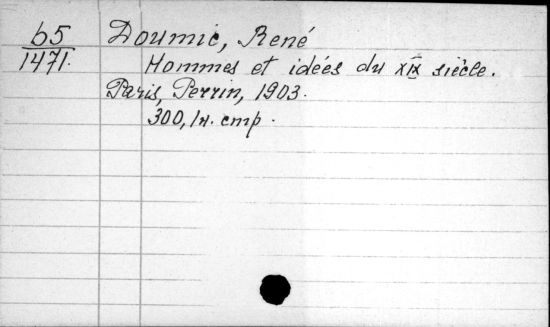 65
1471.
Doumic, René
Hommes et idées du XIX siècle.
Paris, Perrin, 1903.
300, 1н. стр.